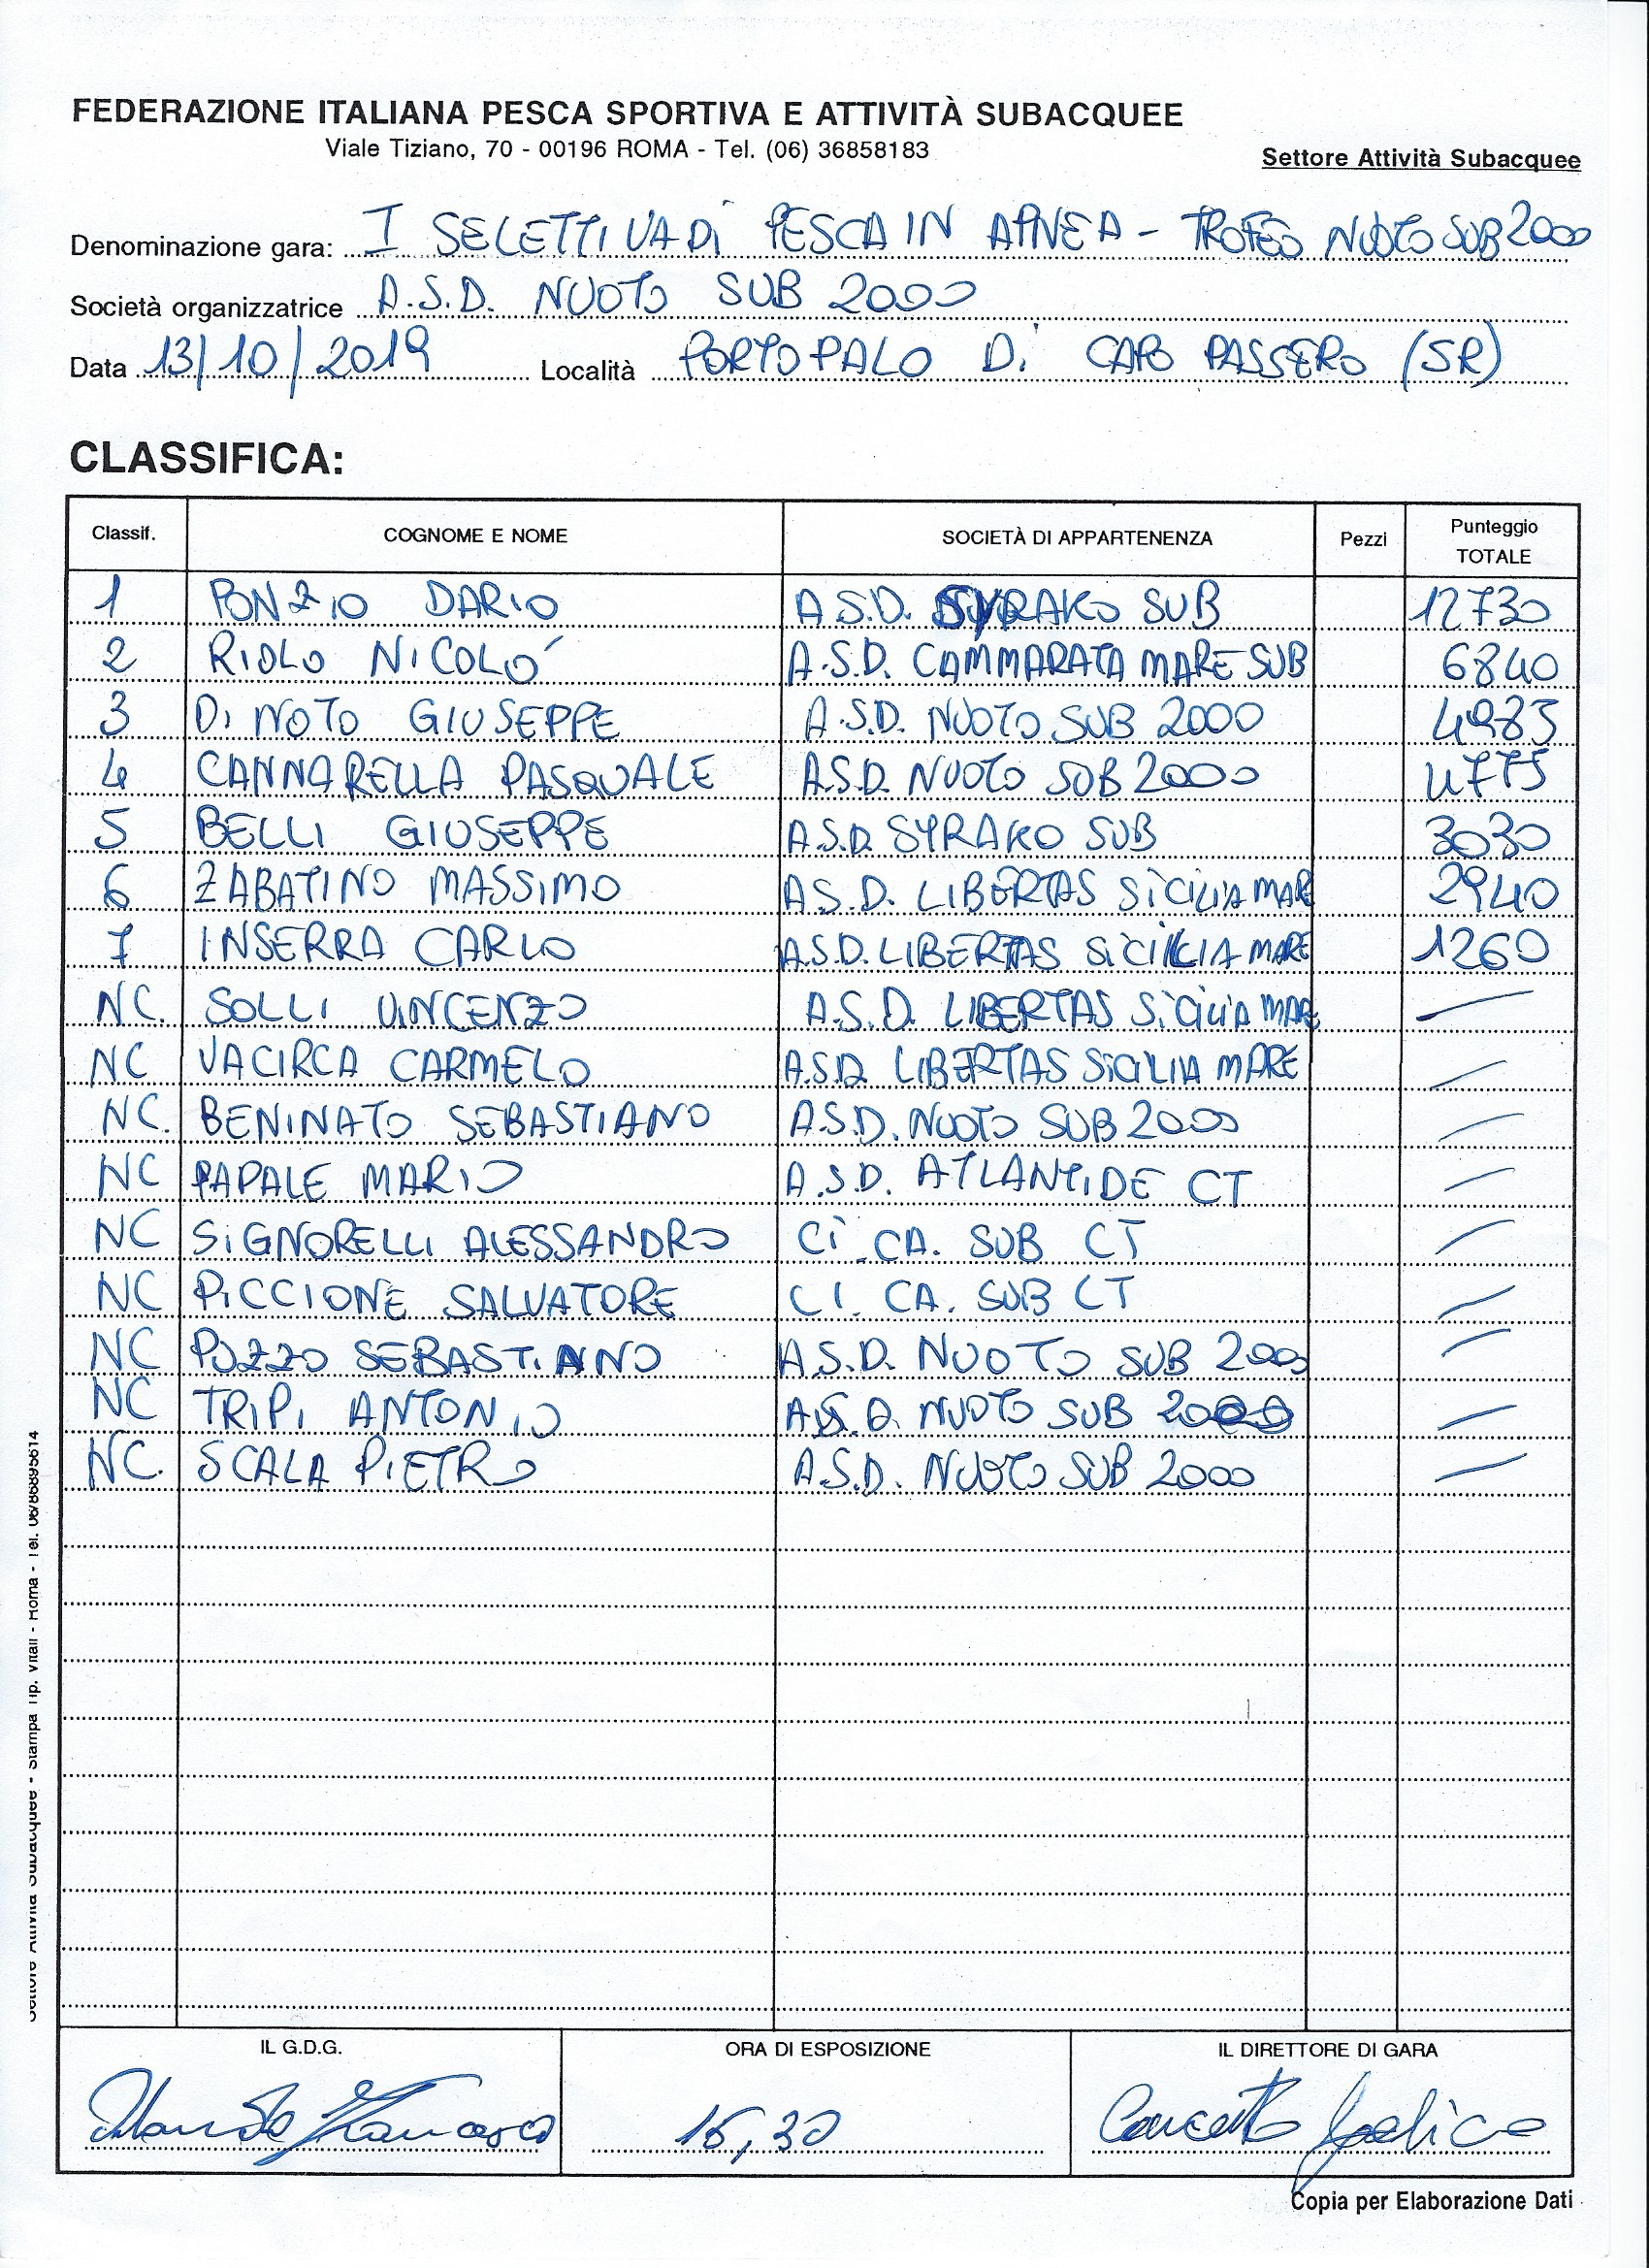 FEDERAZIONE ITALIANA PESCA SPORTIVA E ATTIVITÀ SUBACQUEE
Viale Tiziano, 70 - 00196 ROMA - Tel. (06) 36858183
Settore Attività Subacquee
Denominazione gara: I SELETTIVA DI PESCA IN APNEA - TROFEO NUOTO SUB 2000
Società organizzatrice A.S.D. NUOTO SUB 2000
Data 13/10/2019 Località PORTOPALO DI CAPO PASSERO (SR)
CLASSIFICA:
Classif. COGNOME E NOME SOCIETÀ DI APPARTENENZA Pezzi Punteggio TOTALE
1 PONZIO DARIO A.S.D. SYRAKO SUB 12730
2 RIOLO NICOLO' A.S.D. CAMMARATA MARE SUB 6840
3 DI NOTO GIUSEPPE A.S.D. NUOTO SUB 2000 4983
4 CANNARELLA PASQUALE A.S.D. NUOTO SUB 2000 4775
5 BELLI GIUSEPPE A.S.D. SYRAKO SUB 3030
6 ZABATINO MASSIMO A.S.D. LIBERTAS SICILIA MAR 2940
7 INSERRA CARLO A.S.D. LIBERTAS SICILIA MARE 1260
NC. SOLLI VINCENZO A.S.D. LIBERTAS SICILIA MARE —
NC VACIRCA CARMELO A.S.D. LIBERTAS SICILIA MARE —
NC. BENINATO SEBASTIANO A.S.D. NUOTO SUB 2000 —
NC PAPALE MARIO A.S.D. ATLANTIDE CT —
NC SIGNORELLI ALESSANDRO CI. CA. SUB CT —
NC PICCIONE SALVATORE CI. CA. SUB CT —
NC POZZO SEBASTIANO A.S.D. NUOTO SUB 2000 —
NC TRIPI ANTONIO A.S.D. NUOTO SUB 2000 —
NC. SCALA PIETRO A.S.D. NUOTO SUB 2000 —
IL G.D.G. ORA DI ESPOSIZIONE IL DIRETTORE DI GARA
Francesco 16,30 Concetto
Copia per Elaborazione Dati
Settore Attività Subacquee - Stampa Tip. Vitali - Roma - Tel. 06/86895614